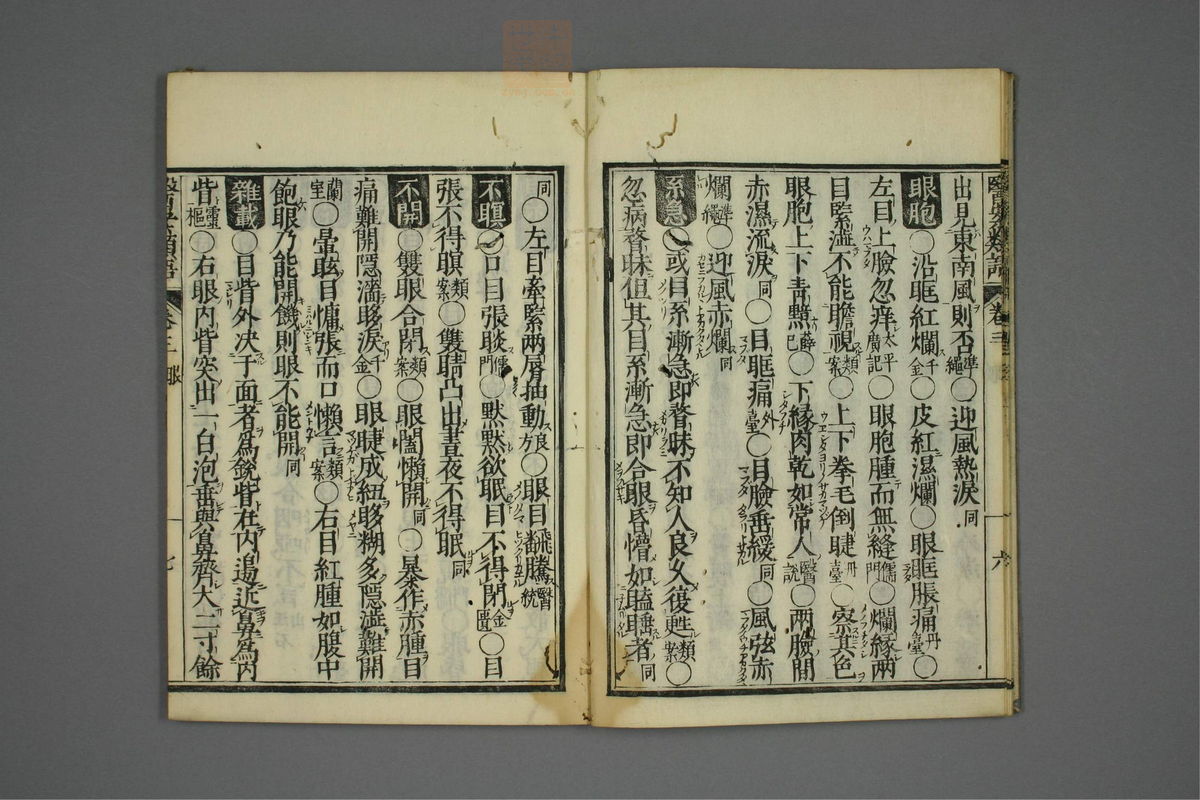 醫學類語 卷三 六
出見東南風則否準繩〇迎風熱淚同
眼胞〇沿眶紅爛千金〇皮紅濕爛〇眼眶脹痛丹臺〇
左目上臉忽痒太平廣記〇眼胞腫而無縫儒門〇爛緣兩
目緊澁不能瞻視類案〇上下拳毛倒睫丹臺〇察其色
眼胞上下青黯薛已〇下緣肉乾如常人醫說〇兩臉間
赤濕流淚同〇目眶痛外臺〇目臉垂緩同〇風弦赤
爛準繩〇迎風赤爛同
系急〇或目系漸急即瞀昧不知人良久復甦類案〇
忽病瞀昧但其目系漸急即合眼昏懵如瞌睡者同
同〇左目牽緊兩脣抽動良方〇眼目翻騰醫統
不瞑〇口目張睒儒門〇默默欲眠目不得閉金匱〇目
張不得瞑類案〇雙睛凸出晝夜不得眠同
不開〇雙眼合閉類案〇眼闔懶開同〇暴作赤腫目
痛難開隱濇眵淚千金〇眼睫成紐眵糊多隱澁難開
蘭室〇暈眩目慵張而口懶言類案〇右目紅腫如腹中
飽眼乃能開饑則眼不能開同
雜載〇目眥外决于面者爲銳眥在内邉近鼻爲内
眥靈樞〇右眼内眥突出一白泡垂與鼻齊大三寸餘
醫學類語 卷三 眼 七